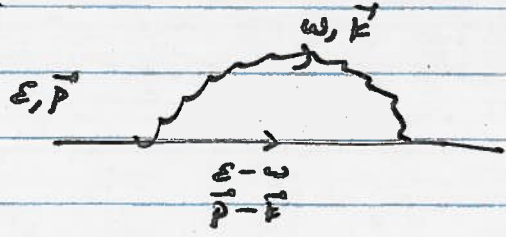 ω, k⃗
ε, p⃗
ε - ω
p⃗ - k⃗